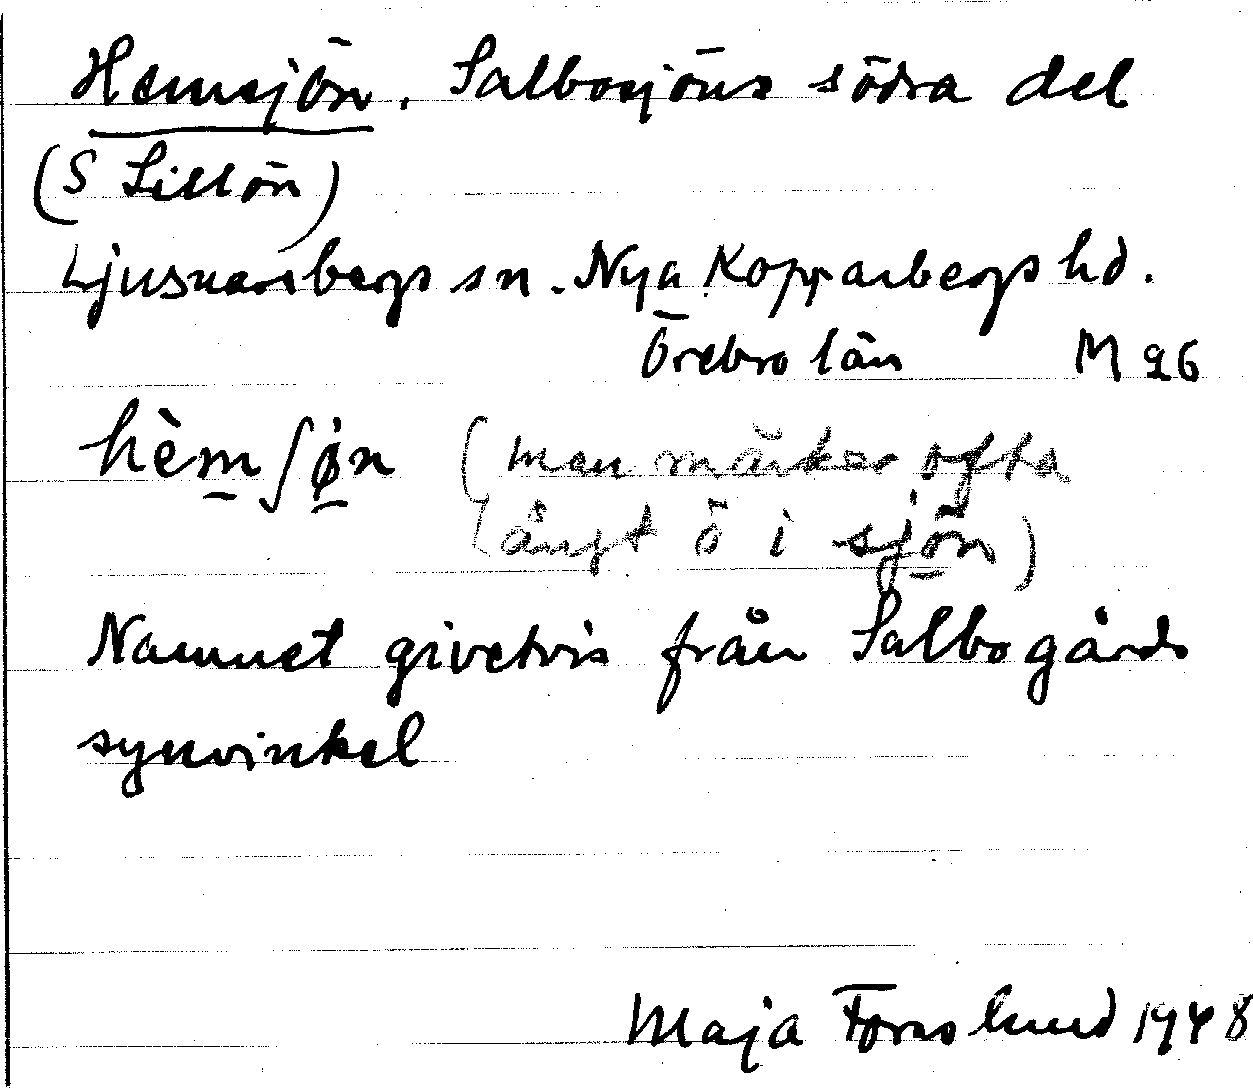 Hemsjön. Salbosjöns södra del
(S Lillön)
Ljusnarsbergs sn. Nya Kopparbergs hd.
Örebro län M 26
hèm̲ʃø̲n (man märker ofta
långt ö i sjön)
Namnet givetvis från Salbogårds
synvinkel
Maja Forslund 1948